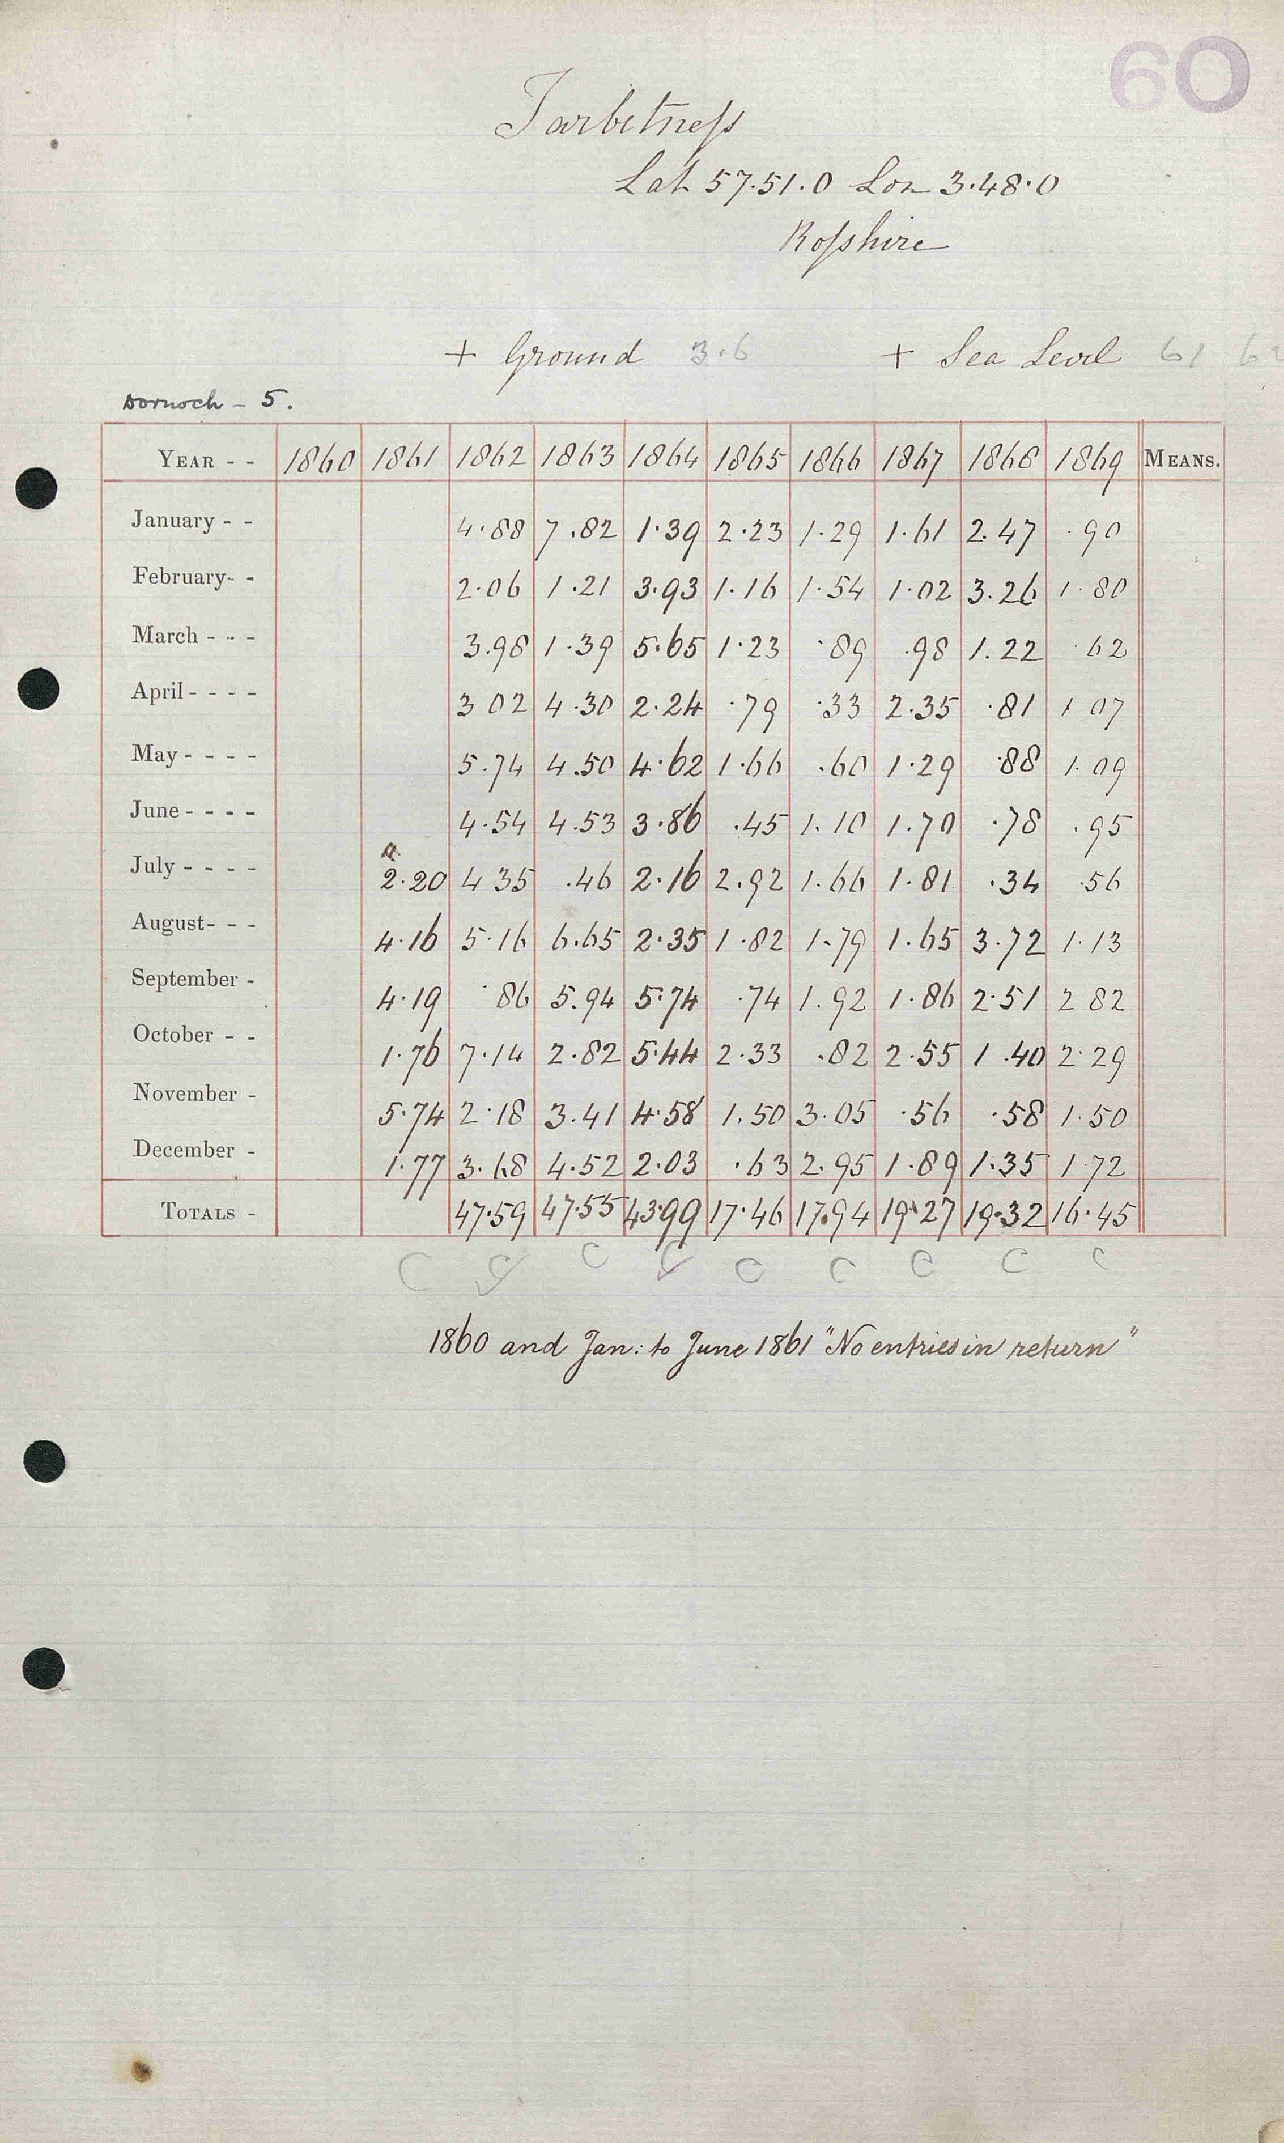 60
Tarbetneſs
Lat 57.51.0 Lon 3.48.0
Roſshire
+ Ground 3.6 + Sea Level 61
Dornoch - 5.
YEAR - - 1860 1861 1862 1863 1864 1865 1866 1867 1868 1869 MEANS.
January - - 4.88 7.82 1.39 2.23 1.29 1.61 2.47 .90
February- - 2.06 1.21 3.93 1.16 1.54 1.02 3.26 1.80
March - - - 3.98 1.39 5.65 1.23 .89 .98 1.22 .62
April - - - - 3 02 4.30 2.24 .79 .33 2.35 .81 1 07
May - - - - 5.74 4.50 4.62 1.66 .60 1.29 .88 1.09
June - - - - 4.54 4.53 3.86 .45 1.10 1.70 .78 .95
July - - - - 2.20 4 35 .46 2.16 2.92 1.66 1.81 .34 .56
August- - - 4.16 5.16 6.65 2.35 1.82 1.79 1.65 3.72 1.13
September - 4.19 .86 5.94 5.74 .74 1.92 1.86 2.51 2 82
October - - 1.76 7.14 2.82 5.44 2.33 .82 2.55 1.40 2.29
November - 5.74 2.18 3.41 4.58 1.50 3.05 .56 .58 1.50
December - 1.77 3.68 4.52 2.03 .63 2.95 1.89 1.35 1.72
TOTALS - 47.59 47.55 43.99 17.46 17.94 19.27 19.32 16.45
C C C C C C C C C
1860 and Jan: to June 1861 "No entries in return"